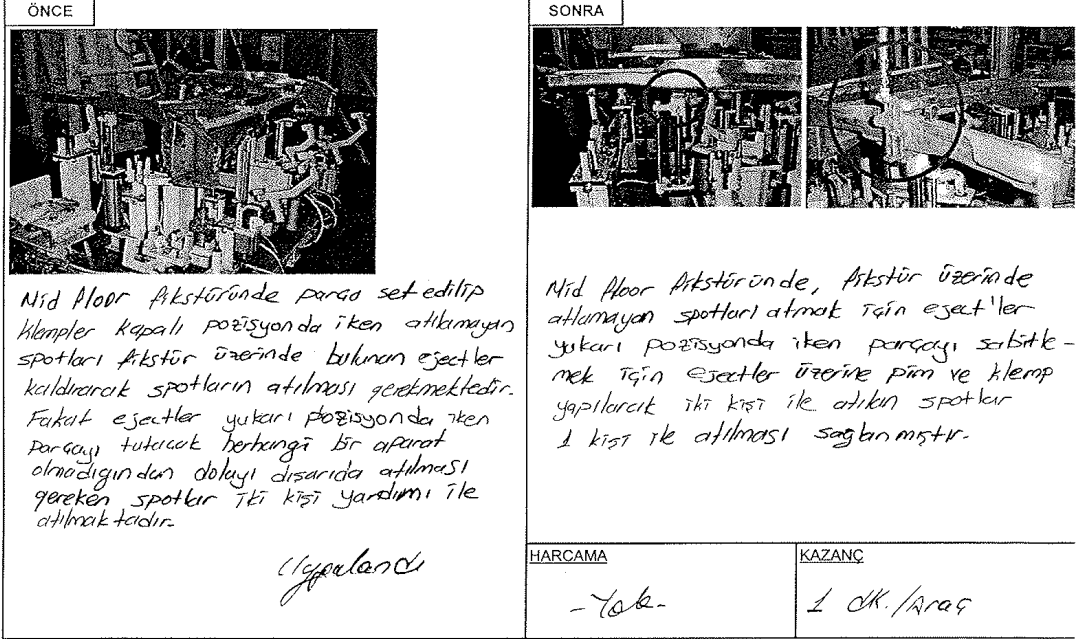 ÖNCE
Mid floor fikstüründe parça set edilip
klempler kapalı pozisyonda iken atılamayan
spotları fikstür üzerinde bulunan ejectler
kaldırarak spotların atılması gerekmektedir.
Fakat ejectler yukarı pozisyonda iken
parçayı tutacak herhangi bir aparat
olmadığından dolayı dışarıda atılması
gereken spotlar iki kişi yardımı ile
atılmaktadır.
Uygulandı
SONRA
Mid floor fikstüründe, fikstür üzerinde
atlamayan spotları atmak için eject'ler
yukarı pozisyonda iken parçayı sabitle-
mek için ejectler üzerine pim ve klemp
yapılarak iki kişi ile atılan spotlar
1 kişi ile atılması sağlanmıştır.
HARCAMA
-Yok-
KAZANÇ
1 dk./Araç